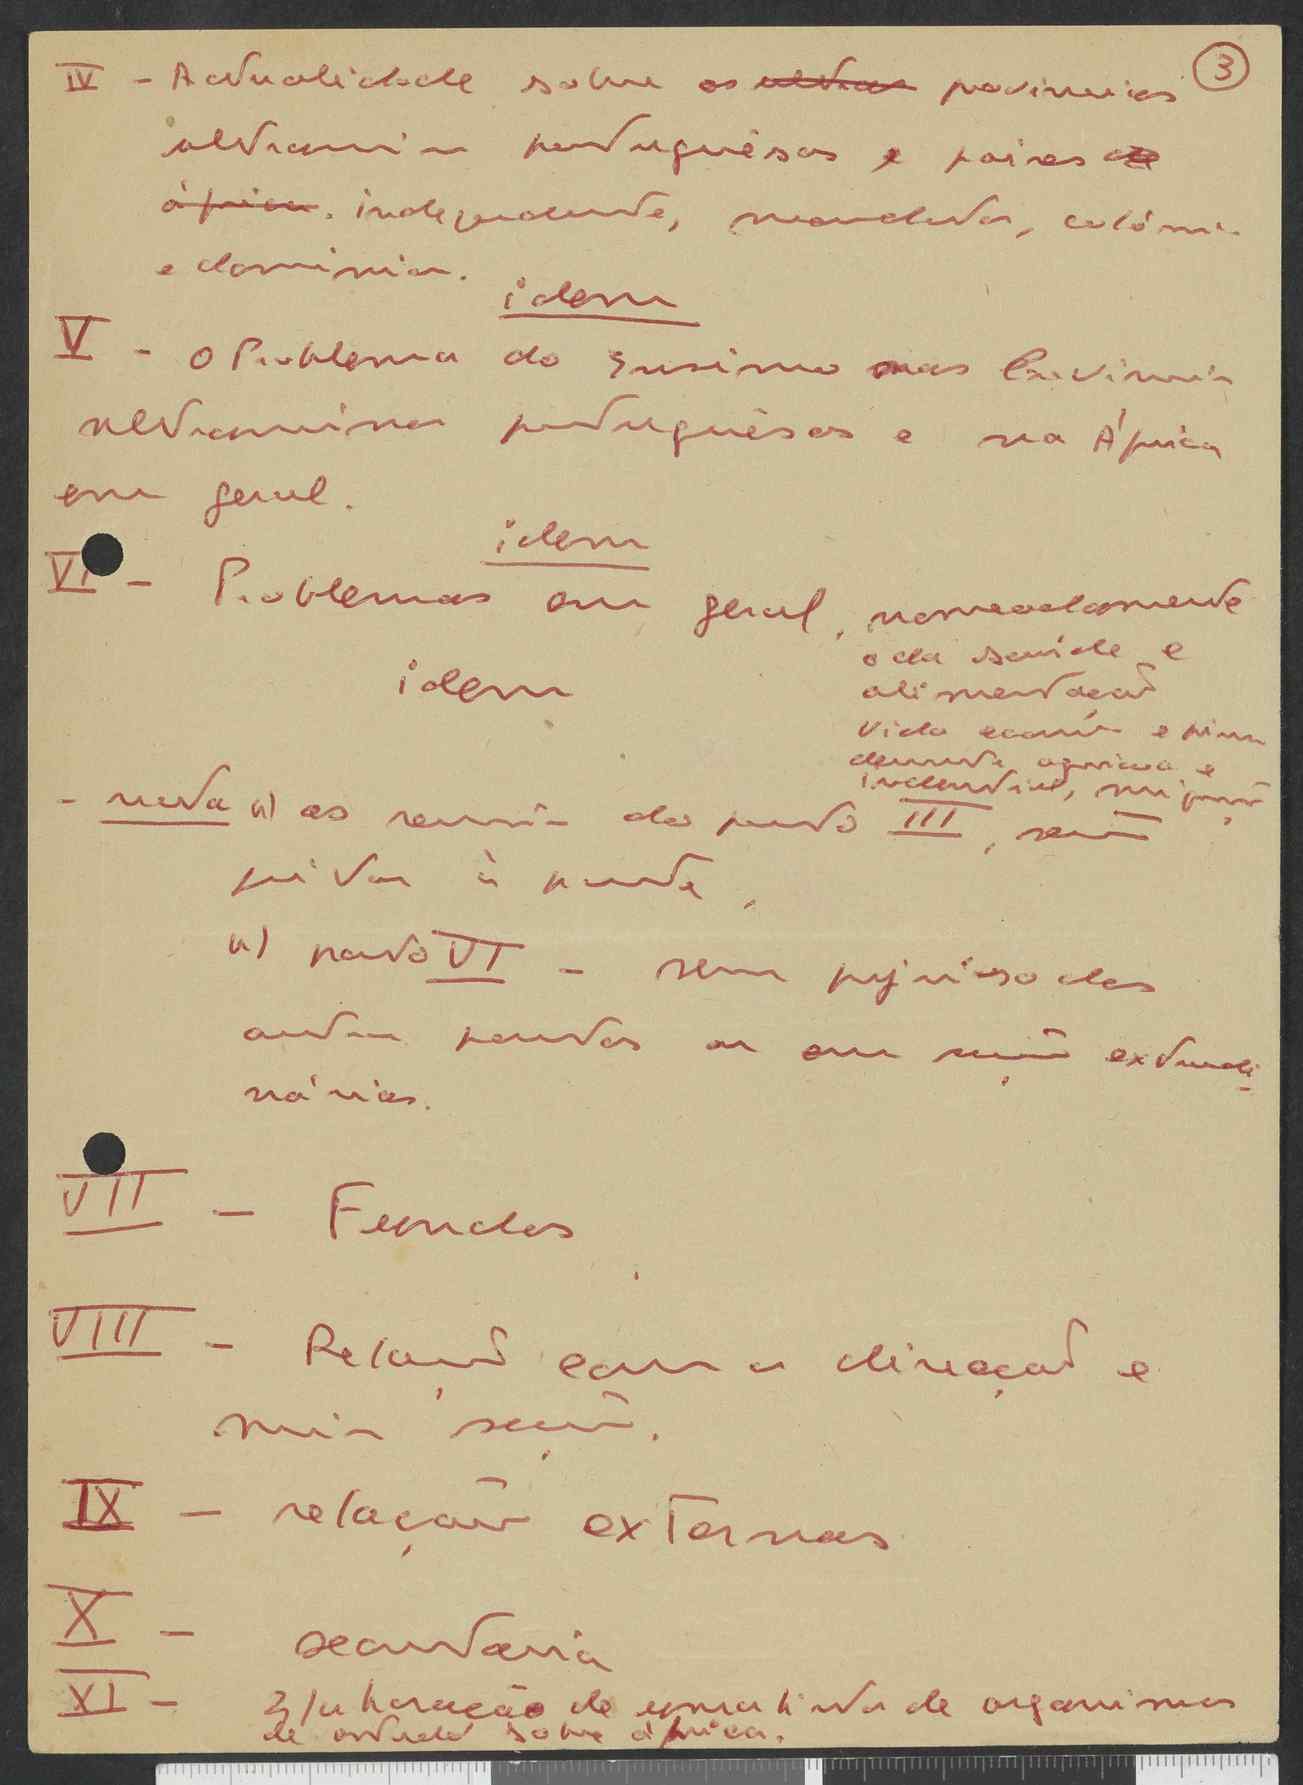 3
IV - Actualidade sobre as ultra provincias
ultramarinas portuguêsas e países de
áfrica. independente, mandatos, colónias
e dominios.
idem
V - O Problema do Ensino nas Provincias
ultramarinas portuguêsas e na África
em geral.
idem
VI - Problemas em geral, nomeadamente
o da saúde e
alimentação
idem
vida econó e
agricola e
industrial,
- nota a) as do ponto III,
à parte,
a) ponto VI - sem prejuiso dos
outros pontos ou em extraordi
nárias.
VII - Fundos
VIII - Relações com a direcção e
secções.
IX - relações externas
X - secretaria
XI - Elaboração de uma lista de organismos
de estudo sobre áfrica.